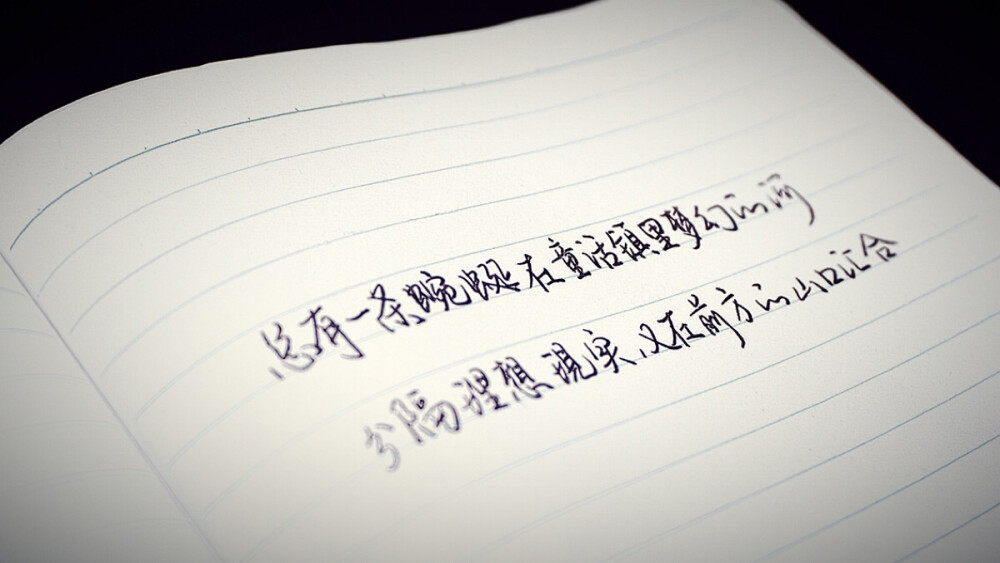 总有一条蜿蜒在童话镇里梦幻的河
分隔理想现实、又在前方的山口汇合